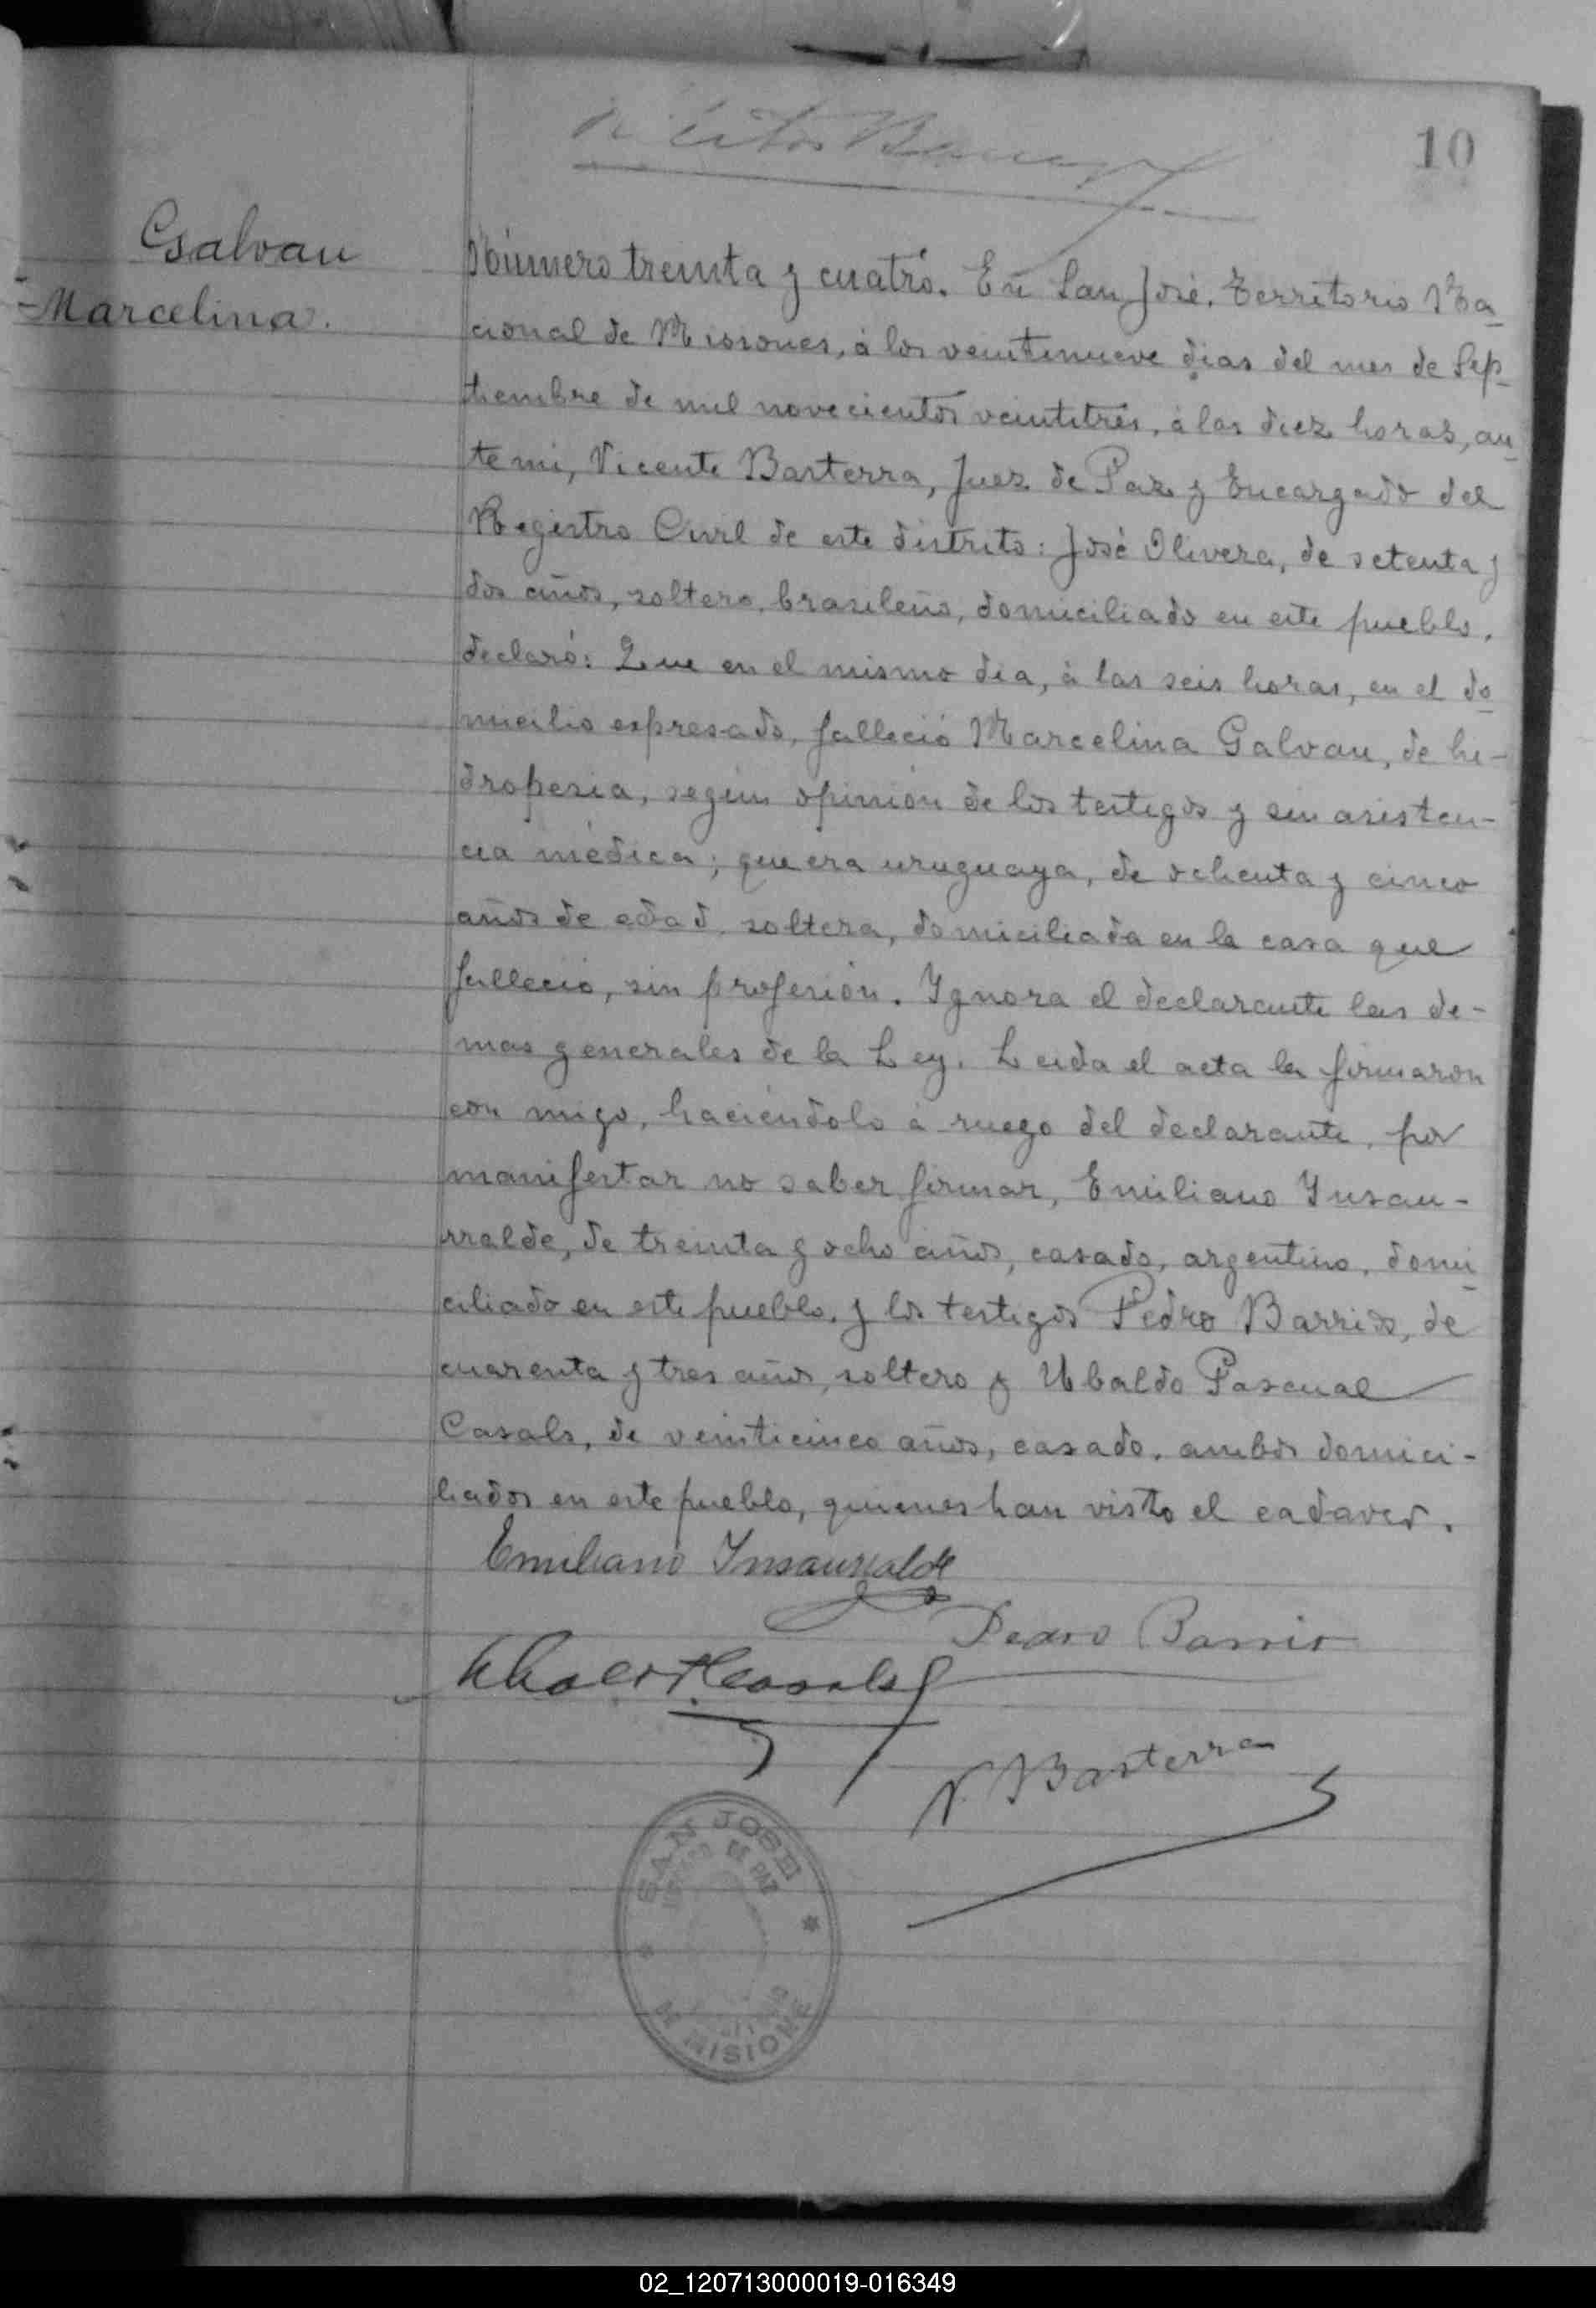 10
Galvan
Marcelina.
Número treinta y cuatro. En San José, Territorio Na-
cional de Misiones, á los veintinueve dias del mes de Sep-
tiembre de mil novecientos veintitrés, á las diez horas, an-
te mi, Vicente Basterra, Juez de Paz y Encargado del
Registro Civil de este distrito: José Olivera, de setenta y
dos años, soltero, brasileño, domiciliado en este pueblo,
declaró: Que en el mismo dia, á las seis horas, en el do-
micilio espresado, falleció Marcelina Galvan, de hi-
dropesia, según opinión de los testigos y sin asisten-
cia médica; que era uruguaya, de ochenta y cinco
años de edad, soltera, domiciliada en la casa que
falleció, sin profesión. Ignora el declarante las de-
mas generales de la Ley. Leida el acta la firmaron
con migo, haciéndolo á ruego del declarante, por
manifestar no saber firmar, Emiliano Insau-
rralde, de treinta y ocho años, casado, argentino, domi-
ciliado en este pueblo, y los testigos Pedro Barrios, de
cuarenta y tres años, soltero y Ubaldo Pascual
Casals, de veinticinco años, casado, ambos domici-
liados en este pueblo, quienes han visto el cadaver.
Emiliano Insaurralde
Pedro Barrio
Casals
V. Basterra
SAN JOSE
DE PAZ
MISIONE
02_120713000019-016349